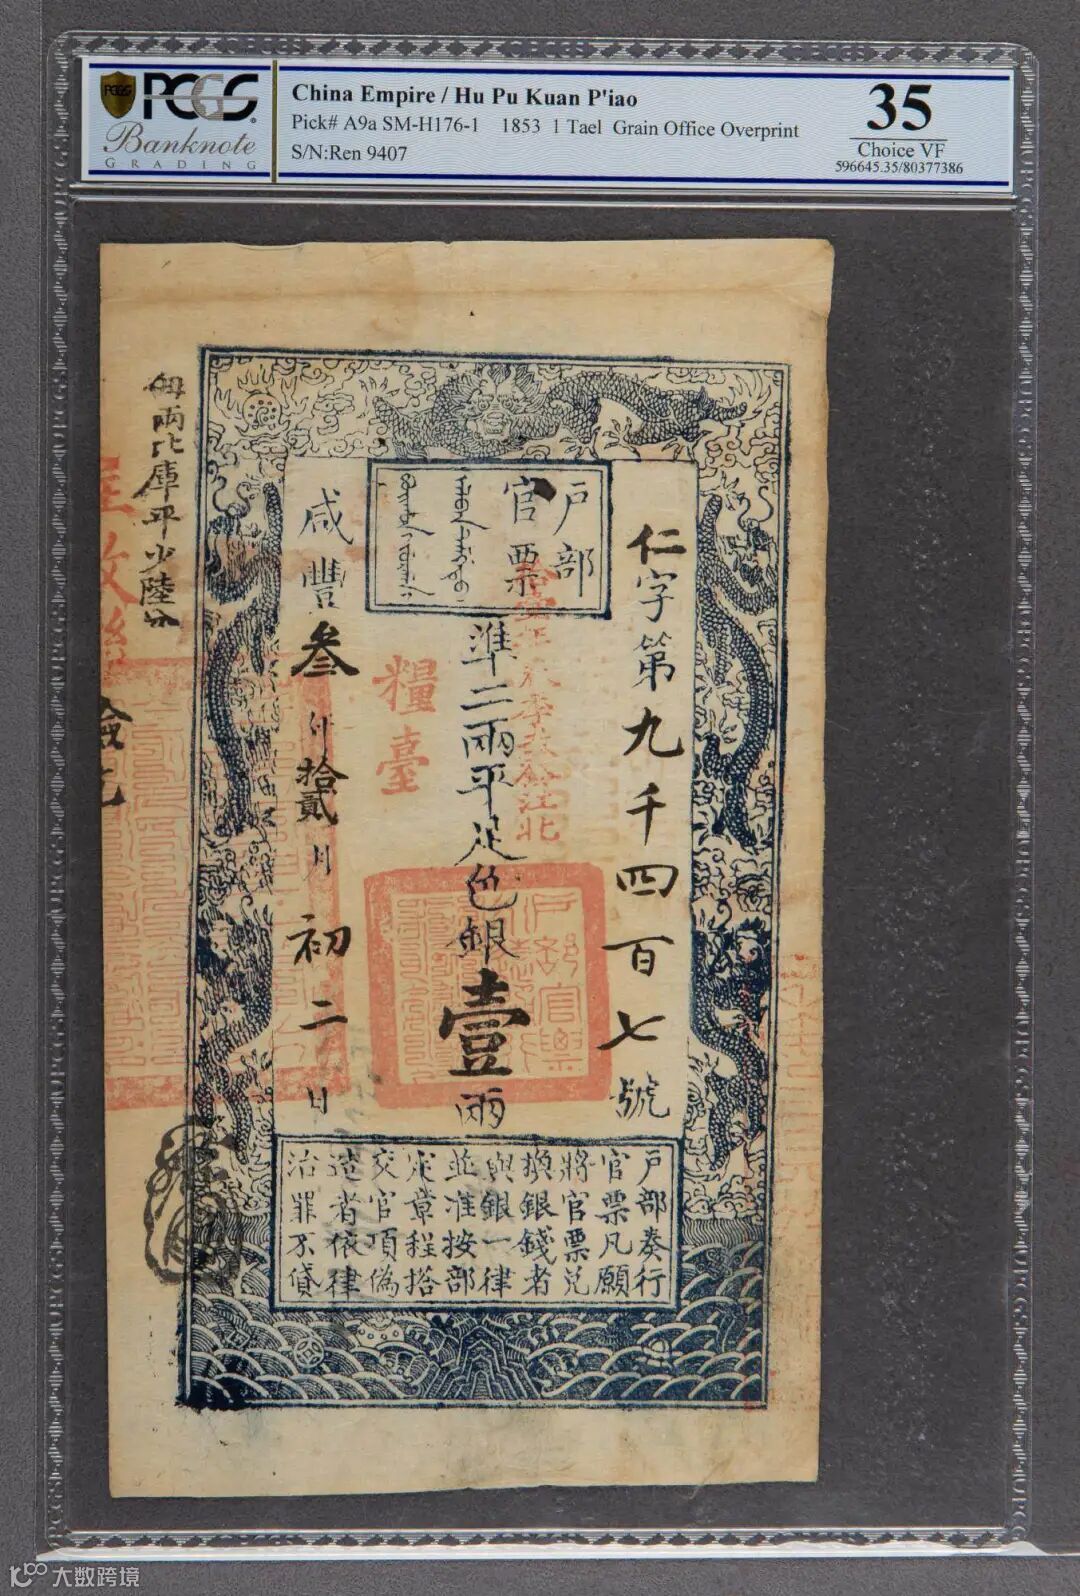 PCGS
Banknote
GRADING
China Empire / Hu Pu Kuan P'iao
Pick# A9a SM-H176-1 1853 1 Tael Grain Office Overprint
S/N:Ren 9407
35
Choice VF
596645.35/80377386
戶部
官票
仁字第九千四百七號
準二兩平足色銀壹兩
糧臺
咸豐叁年拾貳月初二日
每兩比庫平少陸分
戶部奏行
官票凡願
將官票兌
換銀錢者
與銀一律
並准按部
定章程搭
交官項偽
造者依律
治罪不貸
大数跨境